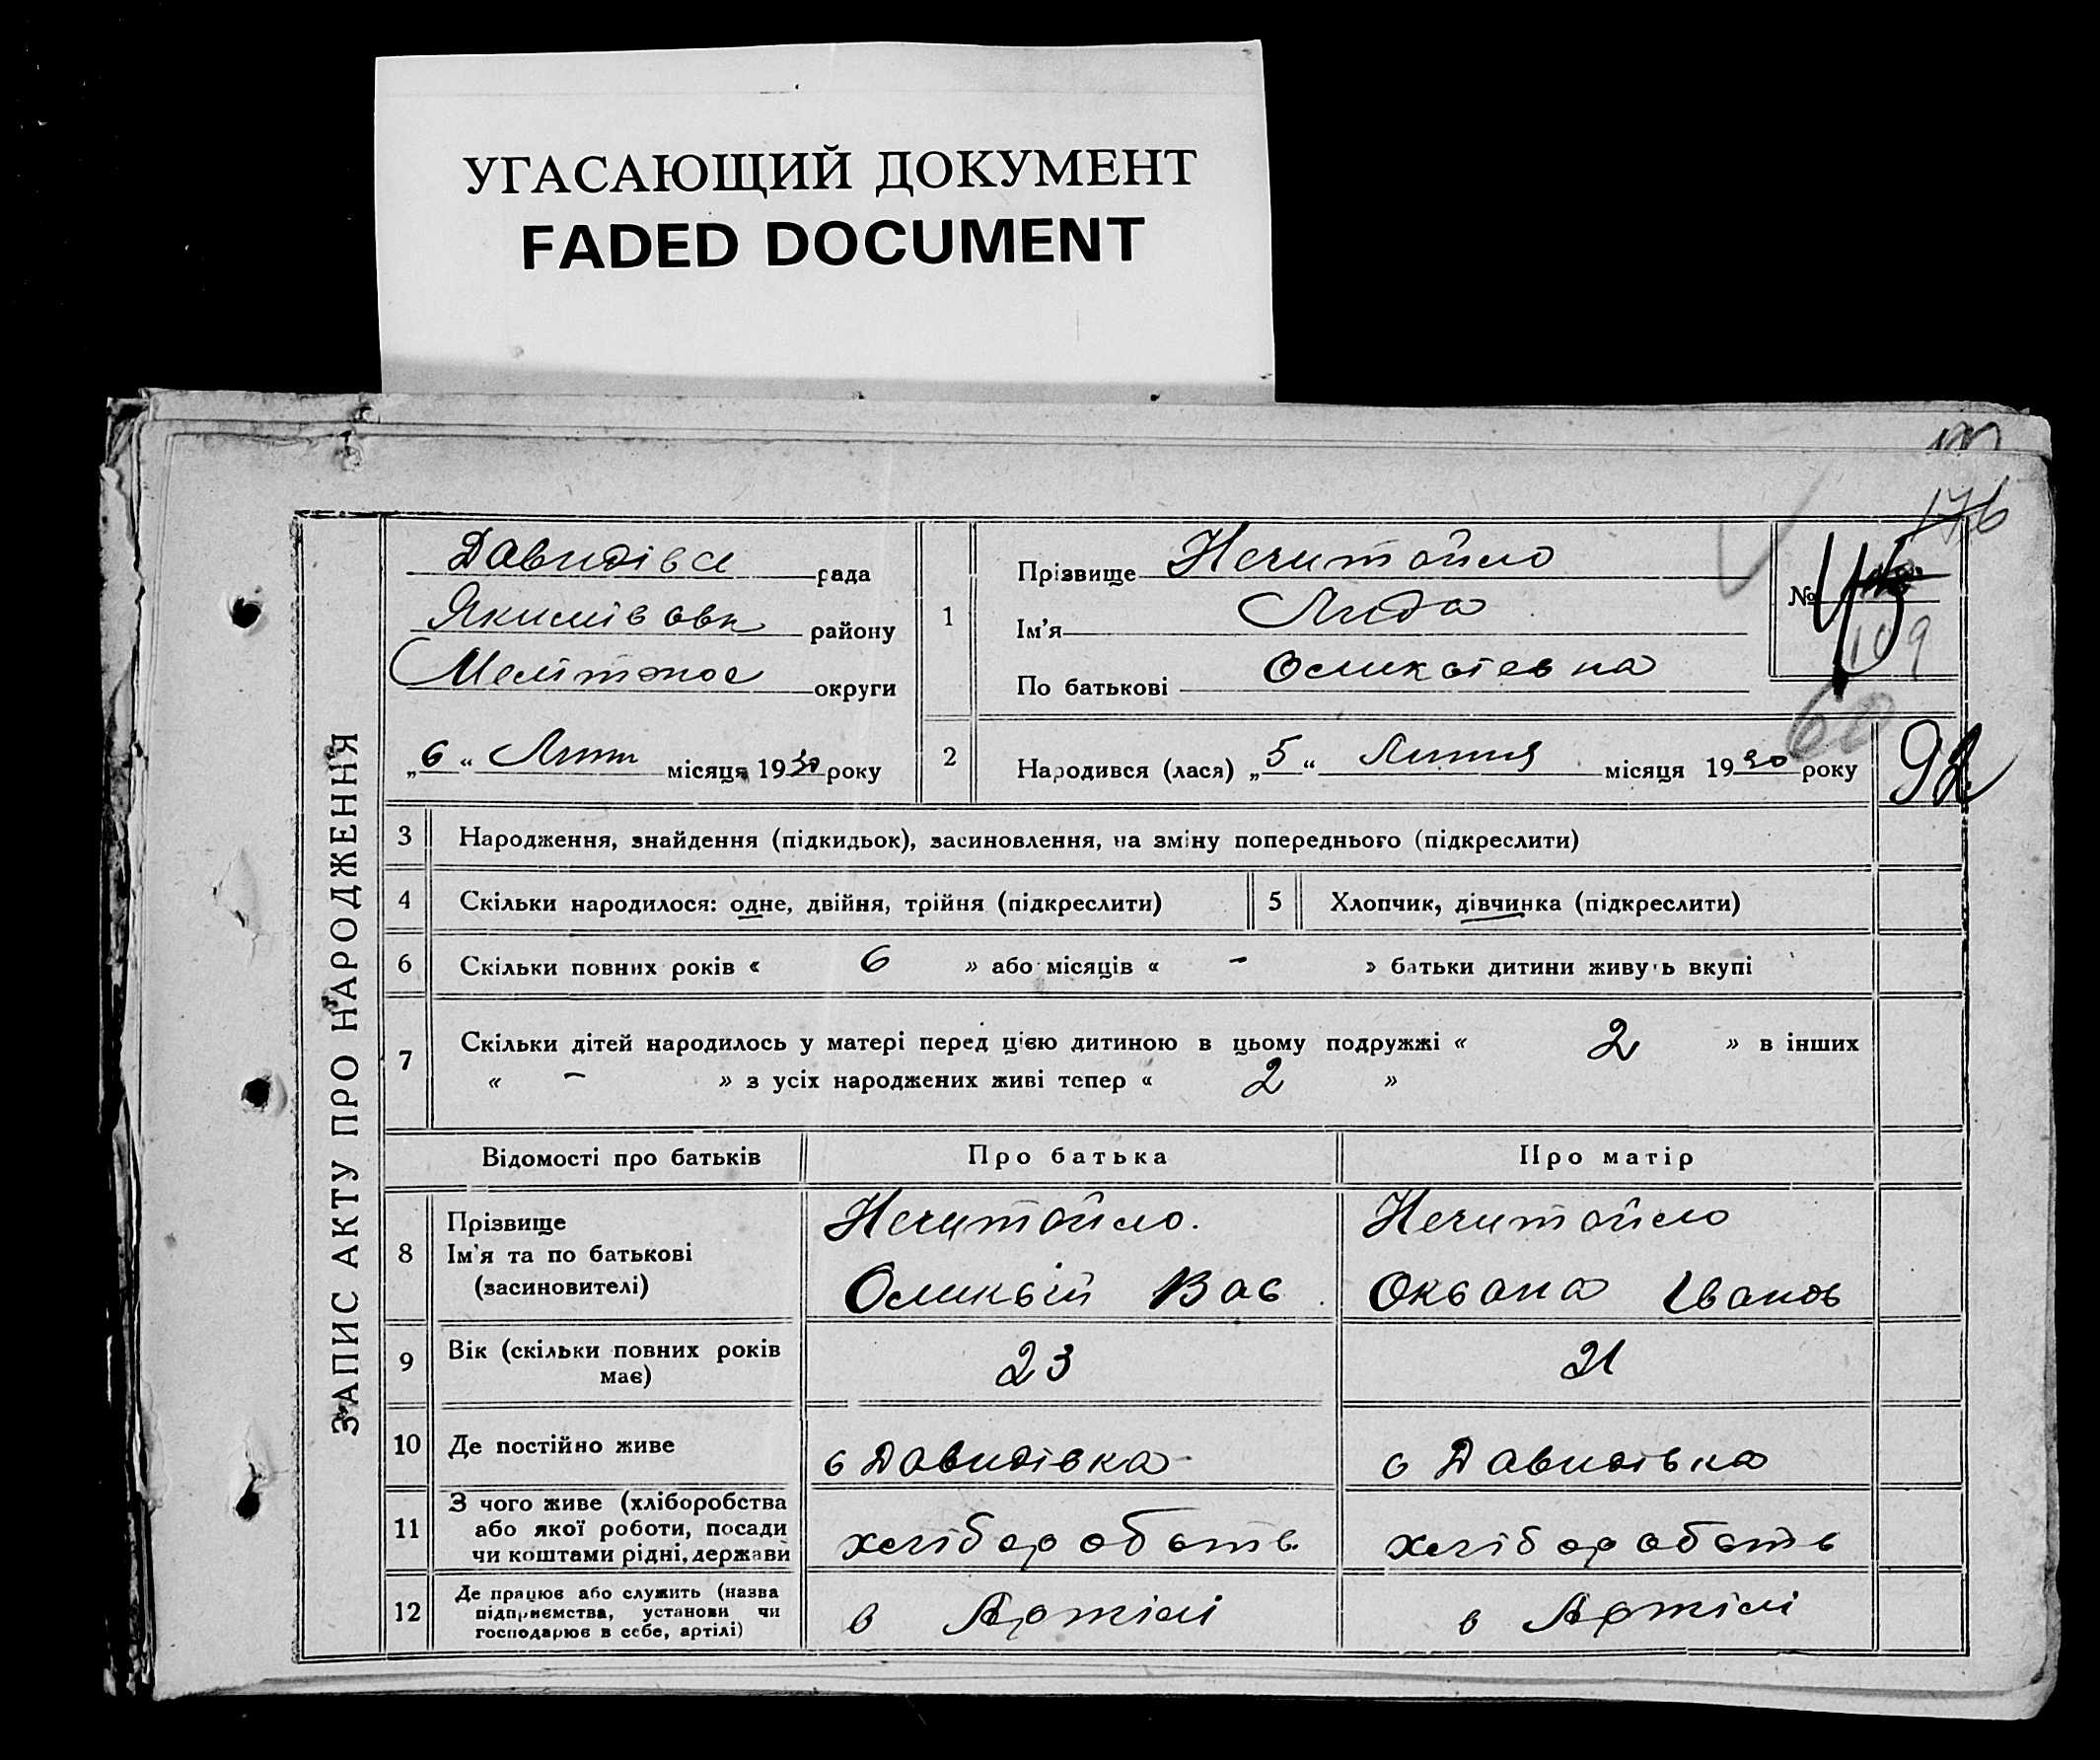 УГАСАЮЩИЙ ДОКУМЕНТ
FADED DOCUMENT
176
ЗАПИС АКТУ ПРО НАРОДЖЕННЯ
Давидівс рада
Якимівськ району
Мелітопос округи
„6“ Липн місяця 1930 року
1
Прізвище Нечитайло
Ім'я Лида
По батькові Оликсіевна
№
109
60
92
2 Народився (лася) „5“ Липня місяця 1930 року
3 Народження, знайдення (підкидьок), засиновлення, на зміну попереднього (підкреслити)
4 Скільки народилося: одне, двійня, трійня (підкреслити) 5 Хлопчик, дівчинка (підкреслити)
6 Скільки повних років « 6 » або місяців « - » батьки дитини живуть вкупі
7 Скільки дітей народилось у матері перед цією дитиною в цьому подружжі « 2 » в інших
« - » з усіх народжених живі тепер « 2 »
Відомості про батьків Про батька Про матір
8 Прізвище
Ім'я та по батькові
(засиновителі)
Нечитайло.
Оликсій Вас
Нечитайло
Оксана Іванов
9 Вік (скільки повних років
має)
23
21
10 Де постійно живе с Давидівка с Давидівка
11 З чого живе (хліборобства
або якої роботи, посади
чи коштами рідні, держави
хлібороботв
хлібороботв
12 Де працює або служить (назва
підприємства, установи чи
господарює в себе, артілі)
в Артілі
в Артілі